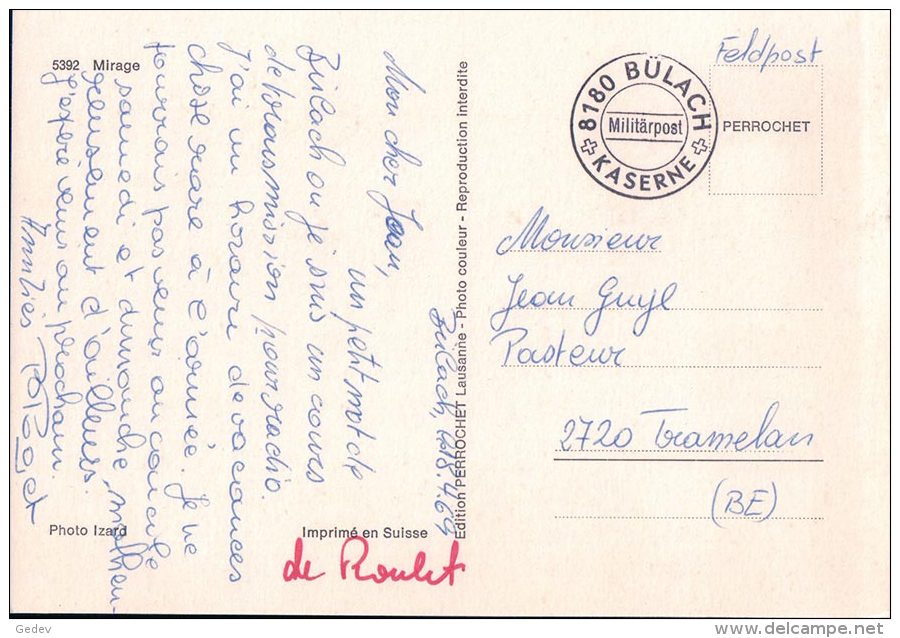 5392 Mirage
Bülach, 18.4.69
Mon cher Jean,
un petit mot de
Bülach ou je suis un cours
de transmission pour radio.
J'ai un horaire de vacances
chose rare à l'armée. Je ne
pourrais pas venir au concile
samedi et dimanche, malheu-
reusement d'ailleurs.
J'espère venir au prochain.
Amitiés
de Roulet
Photo Izard
Imprimé en Suisse
Edition PERROCHET Lausanne - Photo couleur - Reproduction interdite
Feldpost
8180 BÜLACH
Militärpost
KASERNE
PERROCHET
Monsieur
Jean Guyl
Pasteur
2720 Tramelan
(BE)
Gedev
delcampe.net